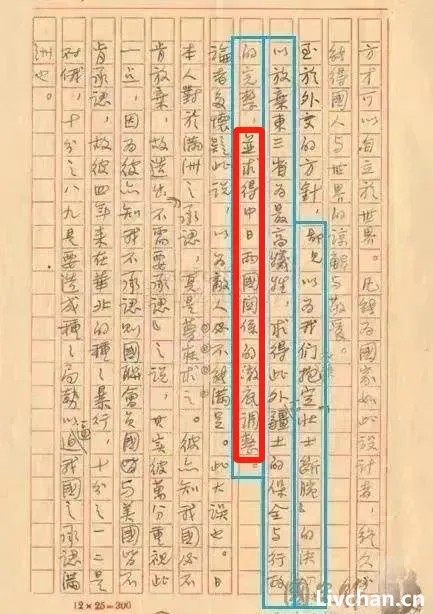 方才可以自立於世界。凡能為國家如此設計者，終久必
能得國人与世界的諒解与敬愛。
至於外交的方針，鄙見以為我們抱定壯士斷腕的決
以放棄東三省為最高犧牲，求得此外疆土的保全与行政
的完整，並求得中日两國關係的澈底調整。
論者多懷疑此說，以為敵人必不能滿足。此大誤也。日
本人對於滿洲之承認，真是夢寐求之。彼亦知我國必不
肯放棄，故造出「不需要承認」之說，其實彼萬分重視此
一点，因為彼亦知我不承認則國聯會員國皆与美國皆不
肯承認，故彼四年來在華北的種々暴行，十分之一二是
对俄，十分之八九是要造成種々局勢以逼我國之承認滿
洲也。
12×25=300
Livchan.cn